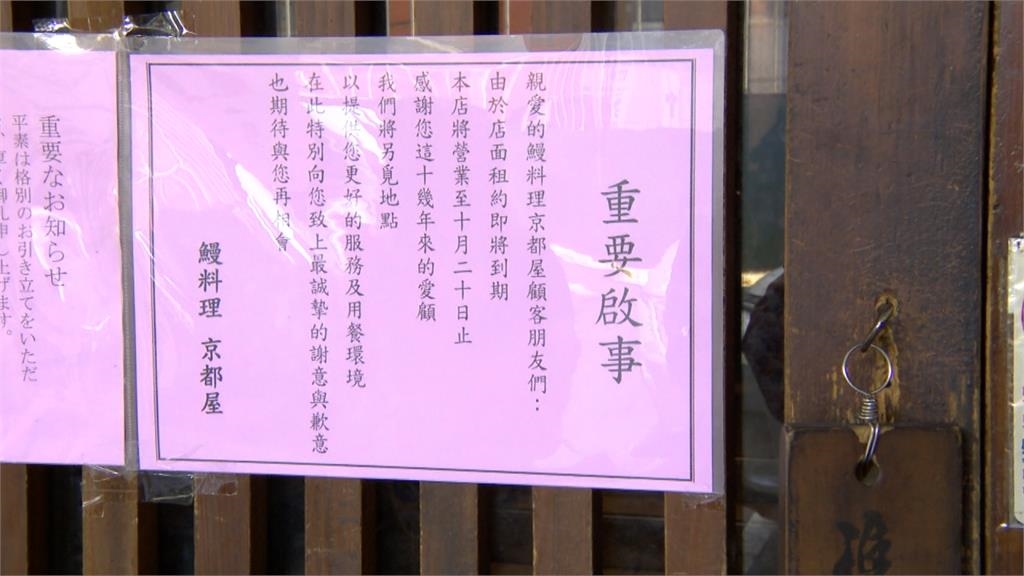 重要啟事
親愛的鰻料理京都屋顧客朋友們：
由於店面租約即將到期
本店將營業至十月二十日止
感謝您這十幾年來的愛顧
我們將另覓地點
以提供您更好的服務及用餐環境
在此特別向您致上最誠摯的謝意與歉意
也期待與您再相會
鰻料理 京都屋
重要なお知らせ
平素は格別のお引き立てをいただ
御礼申し上げます。